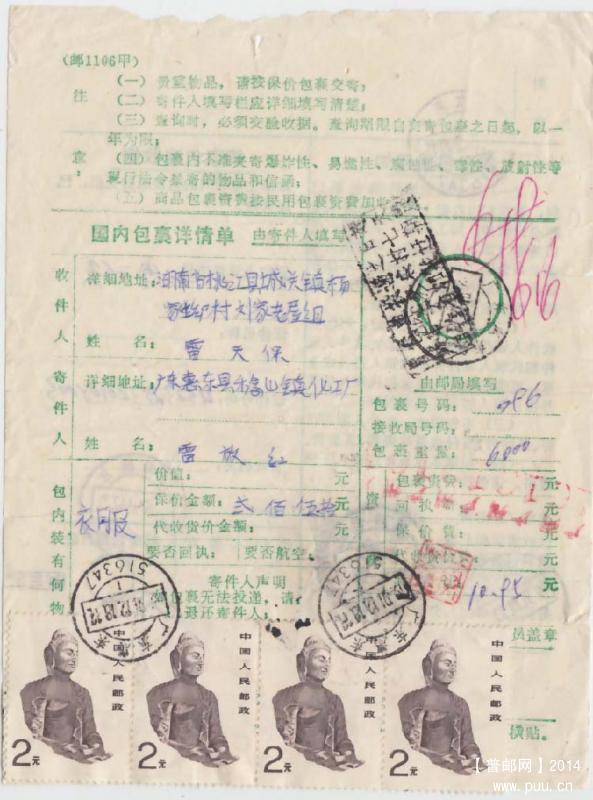 (邮1106甲)
注意:
(一) 贵重物品,请按保价包裹交寄;
(二) 寄件人填写栏应详细填写清楚;
(三) 查询时,必须交验收据。查询期限自交寄包裹之日起,以一
年为限;
(四) 包裹内不准夹寄爆炸性、易燃性、腐蚀性、毒性、放射性等
现行法令禁寄的物品和信函;
(五) 商品包裹资费按民用包裹资费加收
国内包裹详情单 由寄件人填写
收件人
详细地址: 湖南省桃江县城关镇杨
家坳村刘家老屋组
姓名: 雷天保
寄件人
详细地址: 广东惠东县稔山镇化工厂
姓名: 雷 红
由邮局填写
包裹号码: 086
接收局号码:
包裹重量: 6000
包内装有何物
衣服
价值: 元
保价金额: 贰佰伍拾 元
代收货价金额: 元
要否回执: 要否航空:
资
包裹资费: 元
回执 元
保价费: 元
代收货价 元
10.95 元
寄件人声明
如包裹无法投递,请:
退还寄件人:
员盖章
516347
516347
中国人民邮政
2元
中国人民邮政
2元
中国人民邮政
2元
中国人民邮政
2元
横贴。
616
【普邮网】2014
www.puu.cn